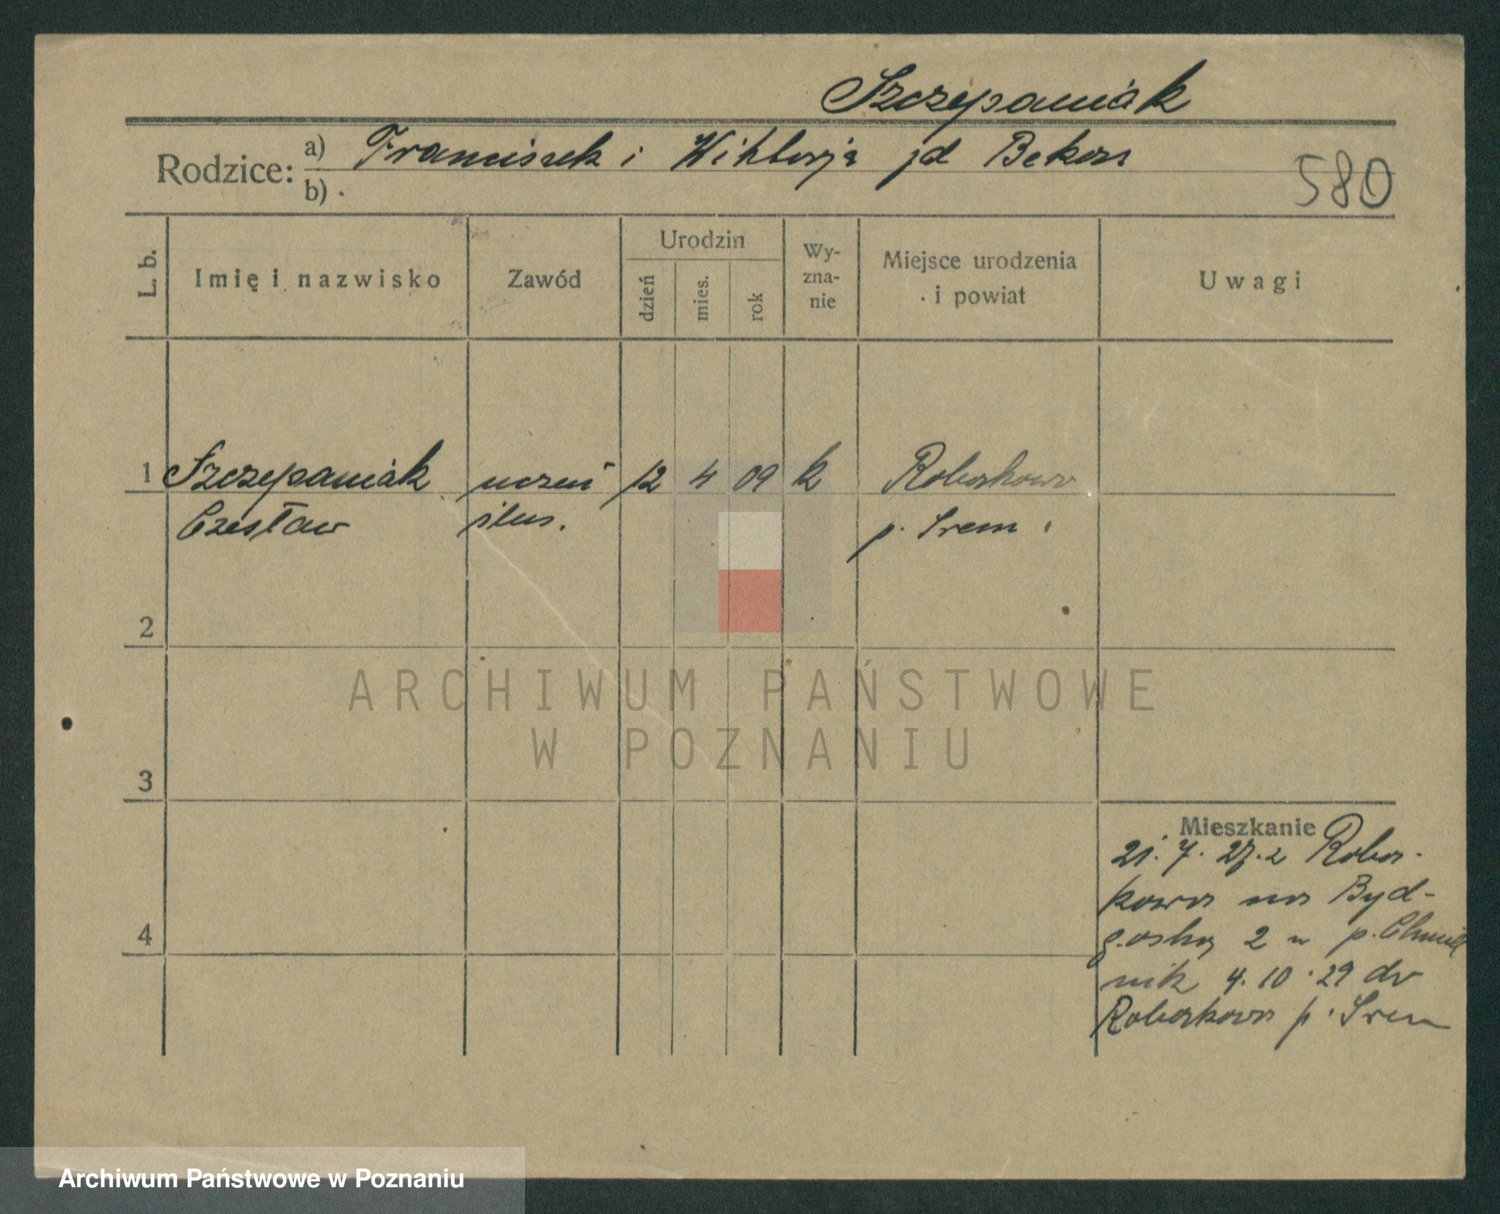 Szczepaniak
Rodzice: a) Franciszek i Wiktorja zd Bekas
b)
580
L. b. Imię i nazwisko Zawód Urodzin dzień mies. rok Wy-zna-nie Miejsce urodzenia i powiat Uwagi
1 Szczepaniak uczeń 12 4 09 k Roboskowo
Czesław ślus. p. Srem
2
ARCHIWUM PAŃSTWOWE
W POZNANIU
3
Mieszkanie
21. 7. 27. z Robos-
kowo na Byd-
goską 2 u p. Chmiel
nik 4. 10. 29 do
Roboskowo p. Srem
4
Archiwum Państwowe w Poznaniu